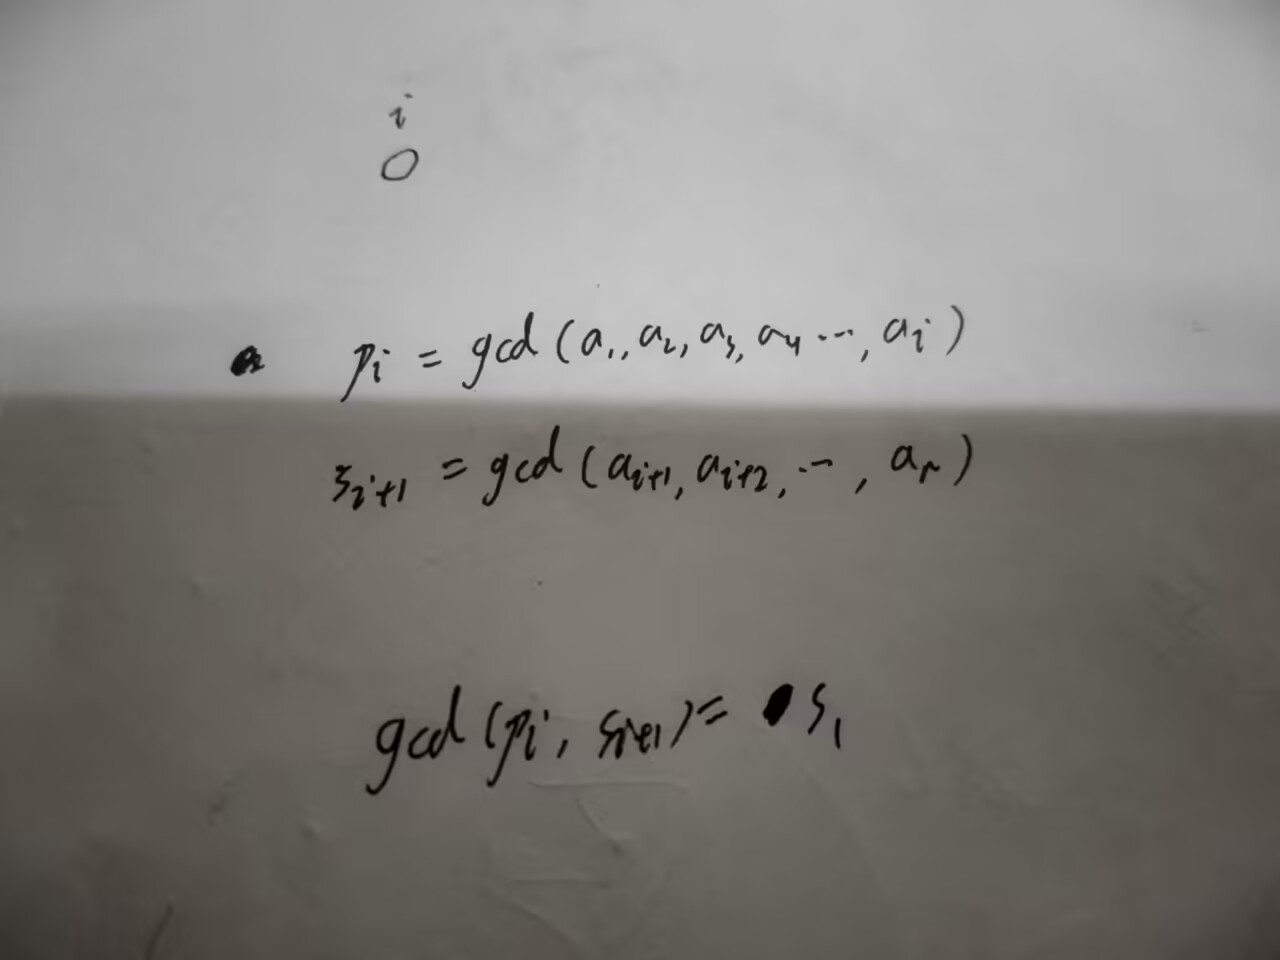 i
O
p_i = gcd(a_1, a_2, a_3, a_4 ..., a_i)
s_{i+1} = gcd(a_{i+1}, a_{i+2}, ..., a_n)
gcd(p_i, s_{i+1}) = s_1